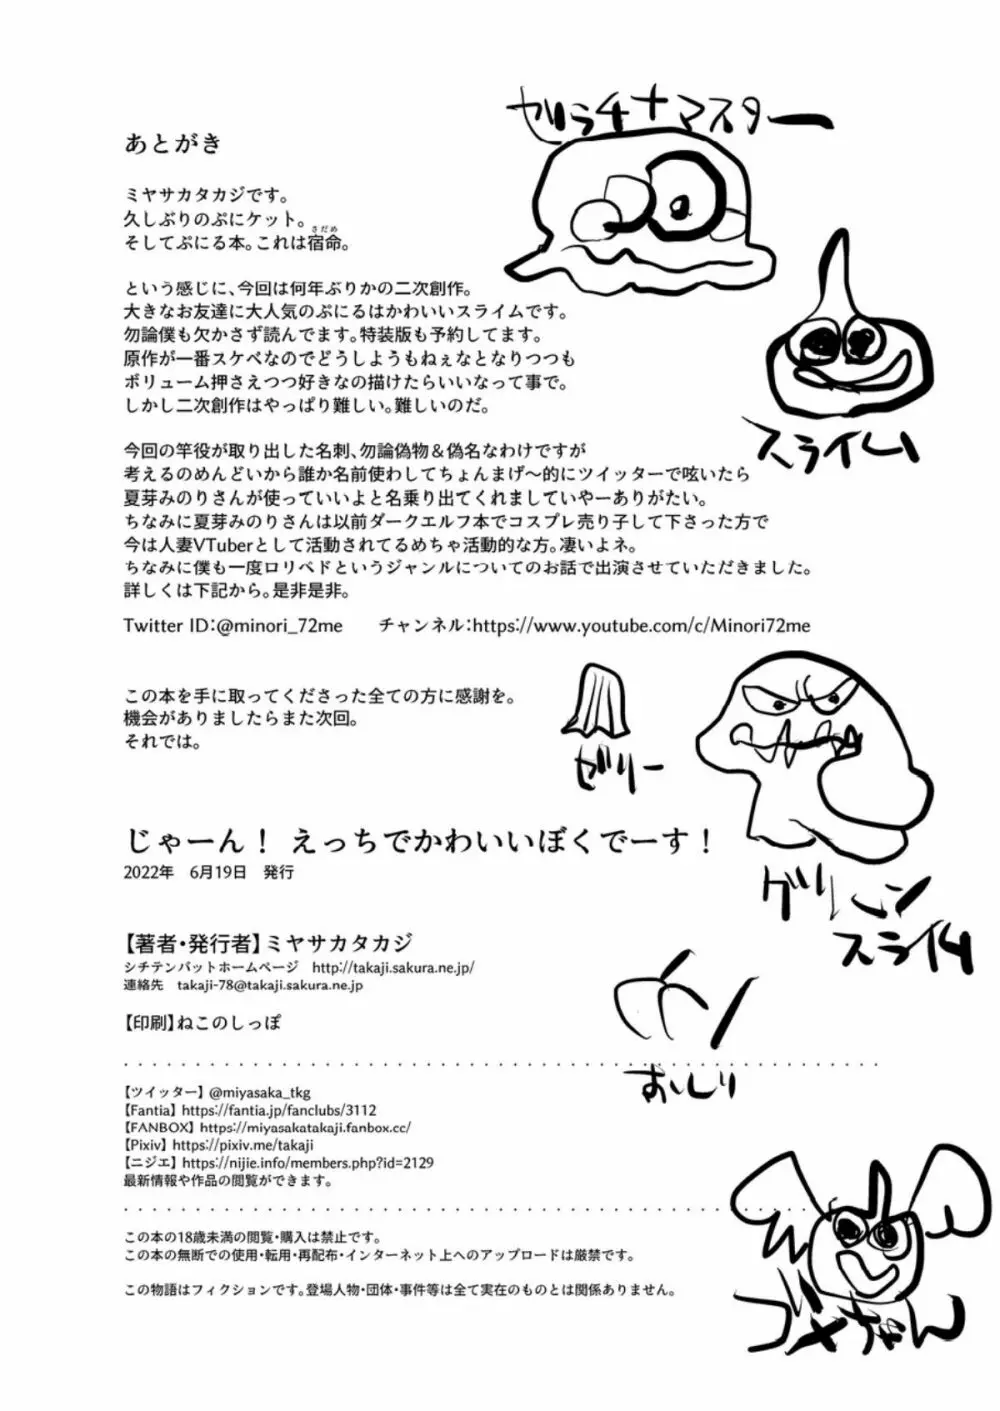 ゼラチナマスター
あとがき
ミヤサカタカジです。
久しぶりのぷにケット。
そしてぷにる本。これは宿命。
さだめ
という感じに、今回は何年ぶりかの二次創作。
大きなお友達に大人気のぷにるはかわいいスライムです。
勿論僕も欠かさず読んでます。特装版も予約してます。
原作が一番スケベなのでどうしようもねぇなとなりつつも
ボリューム押さえつつ好きなの描けたらいいなって事で。
しかし二次創作はやっぱり難しい。難しいのだ。
スライム
今回の竿役が取り出した名刺、勿論偽物＆偽名なわけですが
考えるのめんどいから誰か名前使わしてちょんまげ〜的にツイッターで呟いたら
夏芽みのりさんが使っていいよと名乗り出てくれましていやーありがたい。
ちなみに夏芽みのりさんは以前ダークエルフ本でコスプレ売り子して下さった方で
今は人妻VTuberとして活動されてるめちゃ活動的な方。凄いよネ。
ちなみに僕も一度ロリペドというジャンルについてのお話で出演させていただきました。
詳しくは下記から。是非是非。
Twitter ID:@minori_72me　　チャンネル:https://www.youtube.com/c/Minori72me
この本を手に取ってくださった全ての方に感謝を。
機会がありましたらまた次回。
それでは。
ゼリー
じゃーん！ えっちでかわいいぼくでーす！
2022年　6月19日　発行
グリーン
スライム
【著者・発行者】ミヤサカタカジ
シチテンバットホームページ　http://takaji.sakura.ne.jp/
連絡先　takaji-78@takaji.sakura.ne.jp
【印刷】ねこのしっぽ
おしり
【ツイッター】 @miyasaka_tkg
【Fantia】 https://fantia.jp/fanclubs/3112
【FANBOX】 https://miyasakatakaji.fanbox.cc/
【Pixiv】 https://pixiv.me/takaji
【ニジエ】 https://nijie.info/members.php?id=2129
最新情報や作品の閲覧ができます。
この本の18歳未満の閲覧・購入は禁止です。
この本の無断での使用・転用・再配布・インターネット上へのアップロードは厳禁です。
この物語はフィクションです。登場人物・団体・事件等は全て実在のものとは関係ありません。
ゴメちゃん